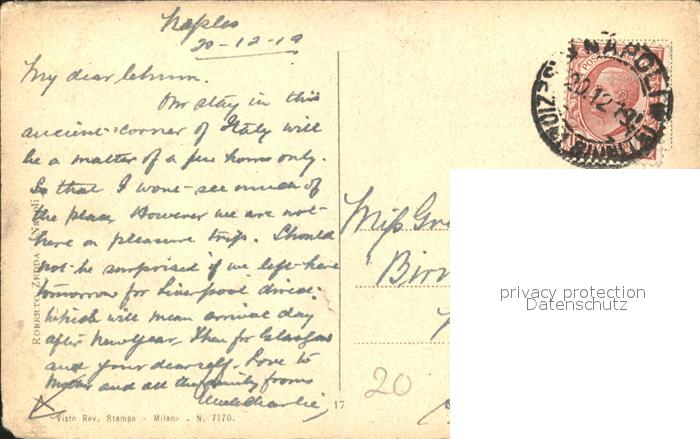 Naples
20-12-19
My dear
Our stay in this
ancient corner of Italy will
be a matter of a few hours only.
So that I wont see much of
the place, However we are not
here on pleasure trip. Should
not be surprised if we left here
tomorrow for Liverpool direct.
Which will mean arrival day
after New Year, then for Glasgow
and your dear self. Love to
Mother and all the family from
Uncle Charlie
ROBERTO ZEDDA - Napoli
Visto Rev. Stampa - Milano - N. 7170.
17
20
NAPOLI
20.12.19
POSTE
Miss
privacy protection
Datenschutz